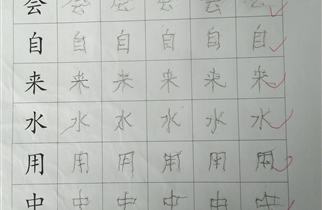 会 会 会 会 会 会
自 自 自 自 自 自
来 来 来 来 来 来
水 水 水 水 水 水
用 用 用 用 用 用
中 中 中 中 中 中